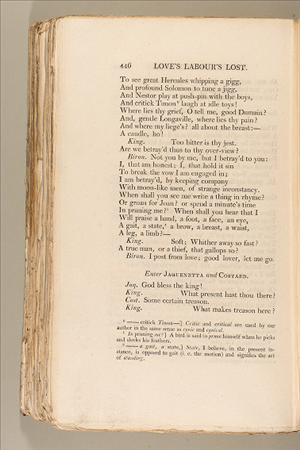 446 LOVE'S LABOUR'S LOST.
To see great Hercules whipping a gigg,
And profound Solomon to tune a jigg,
And Nestor play at push-pin with the boys,
And critick Timon⁴ laugh at idle toys!
Where lies thy grief, O tell me, good Dumain?
And, gentle Longaville, where lies thy pain?
And where my liege's? all about the breast:—
A caudle, ho!
King. Too bitter is thy jest.
Are we betray'd thus to thy over-view?
Biron. Not you by me, but I betray'd to you:
I, that am honest; I, that hold it sin
To break the vow I am engaged in;
I am betray'd, by keeping company
With moon-like men, of strange inconstancy.
When shall you see me write a thing in rhyme?
Or groan for Joan? or spend a minute's time
In pruning me?⁵ When shall you hear that I
Will praise a hand, a foot, a face, an eye,
A gait, a state,⁶ a brow, a breast, a waist,
A leg, a limb?—
King. Soft; Whither away so fast?
A true man, or a thief, that gallops so?
Biron. I post from love; good lover, let me go.
Enter JAQUENETTA and COSTARD.
Jaq. God bless the king!
King. What present hast thou there?
Cost. Some certain treason.
King. What makes treason here?
⁴ —— critick Timon—] Critic and critical are used by our
author in the same sense as cynic and cynical.
⁵ In pruning me?] A bird is said to prune himself when he picks
and sleeks his feathers.
⁶ —— a gait, a state,] State, I believe, in the present in-
stance, is opposed to gait (i. e. the motion) and signifies the act
of standing.